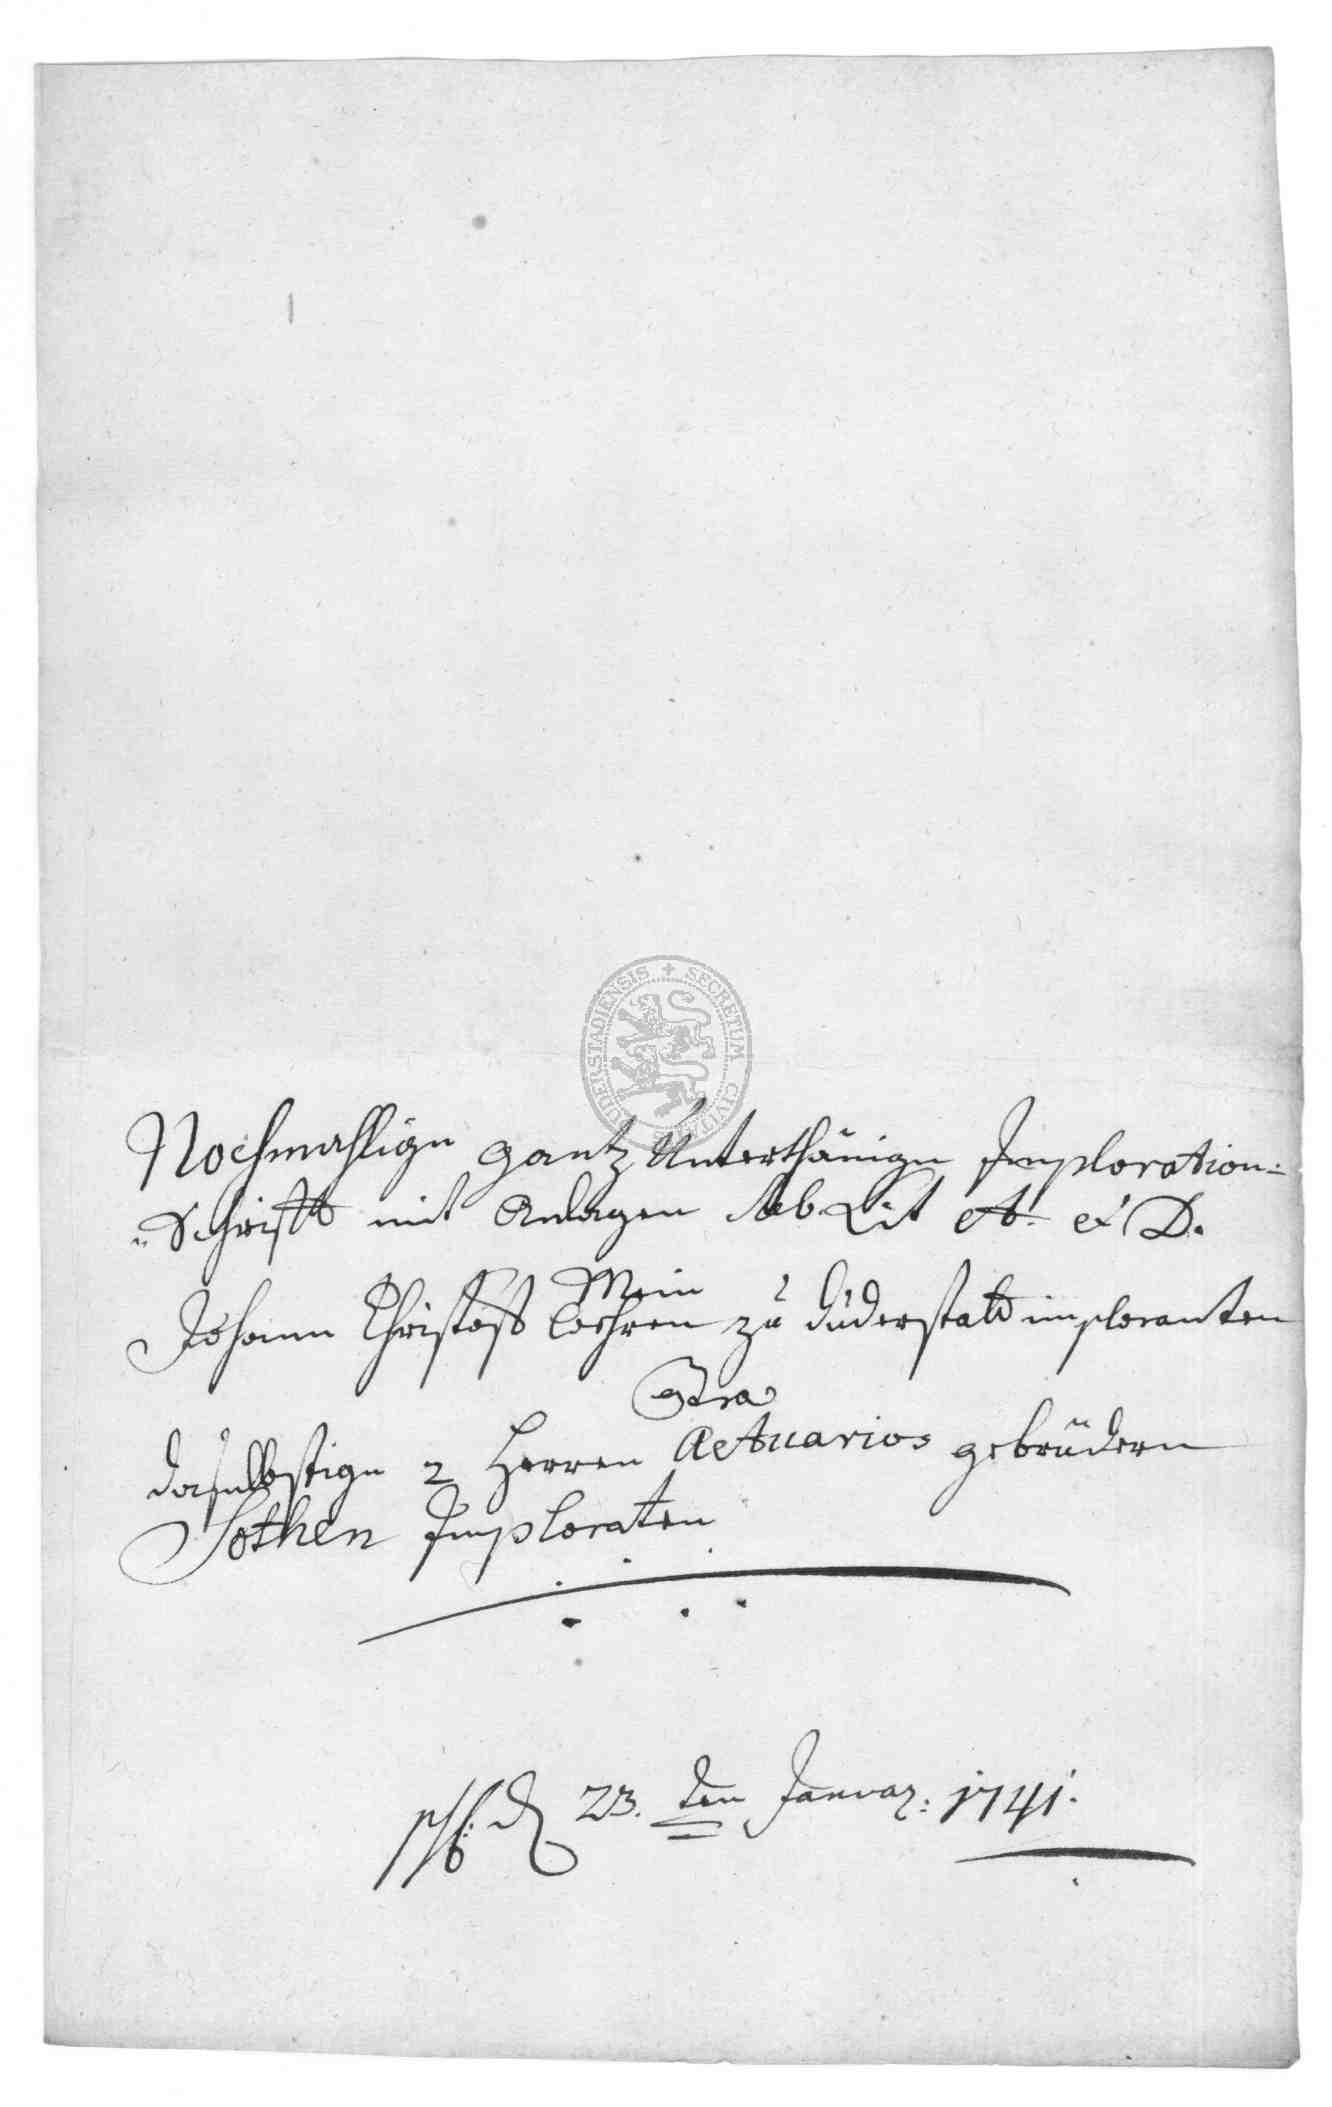 DUDERSTADIENSIS + SECRETUM CIVITATIS
Nochmahlige gantz Unterthänige Imploration=
"Schrifft mit Anlagen sub Lit A. et D.
Mein
Johann Christoff Lochren zu Duderstatt imploranten
9tra
daselbstige 2 Herren Actuarios gebrüdern
Sothen Imploraten
d 23. ten Januar: 1741.